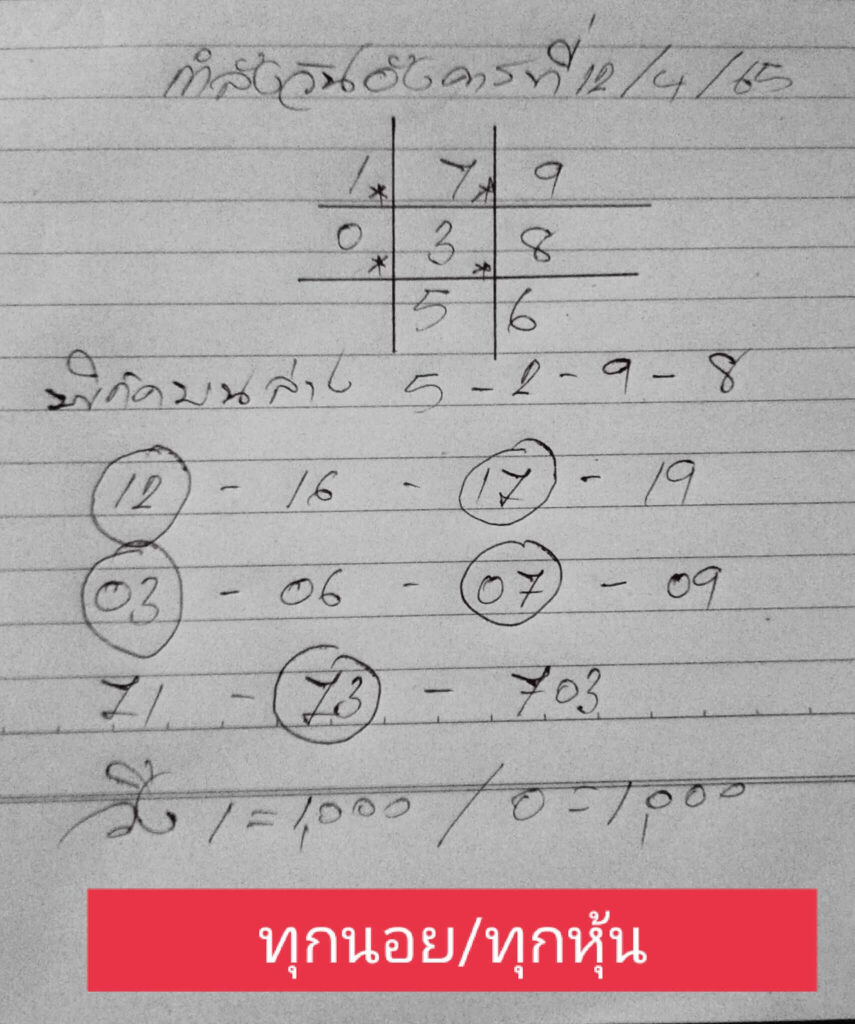 กำลังวันอังคารที่ 12/4/65
1* 7* 9
0* 3* 8
5 6
พิกัดบนล่าง 5 - 2 - 9 - 8
12 - 16 - 17 - 19
03 - 06 - 07 - 09
71 - 73 - 703
วิ่ง 1 = 1,000 / 0 = 1,000
ทุกนอย/ทุกหุ้น